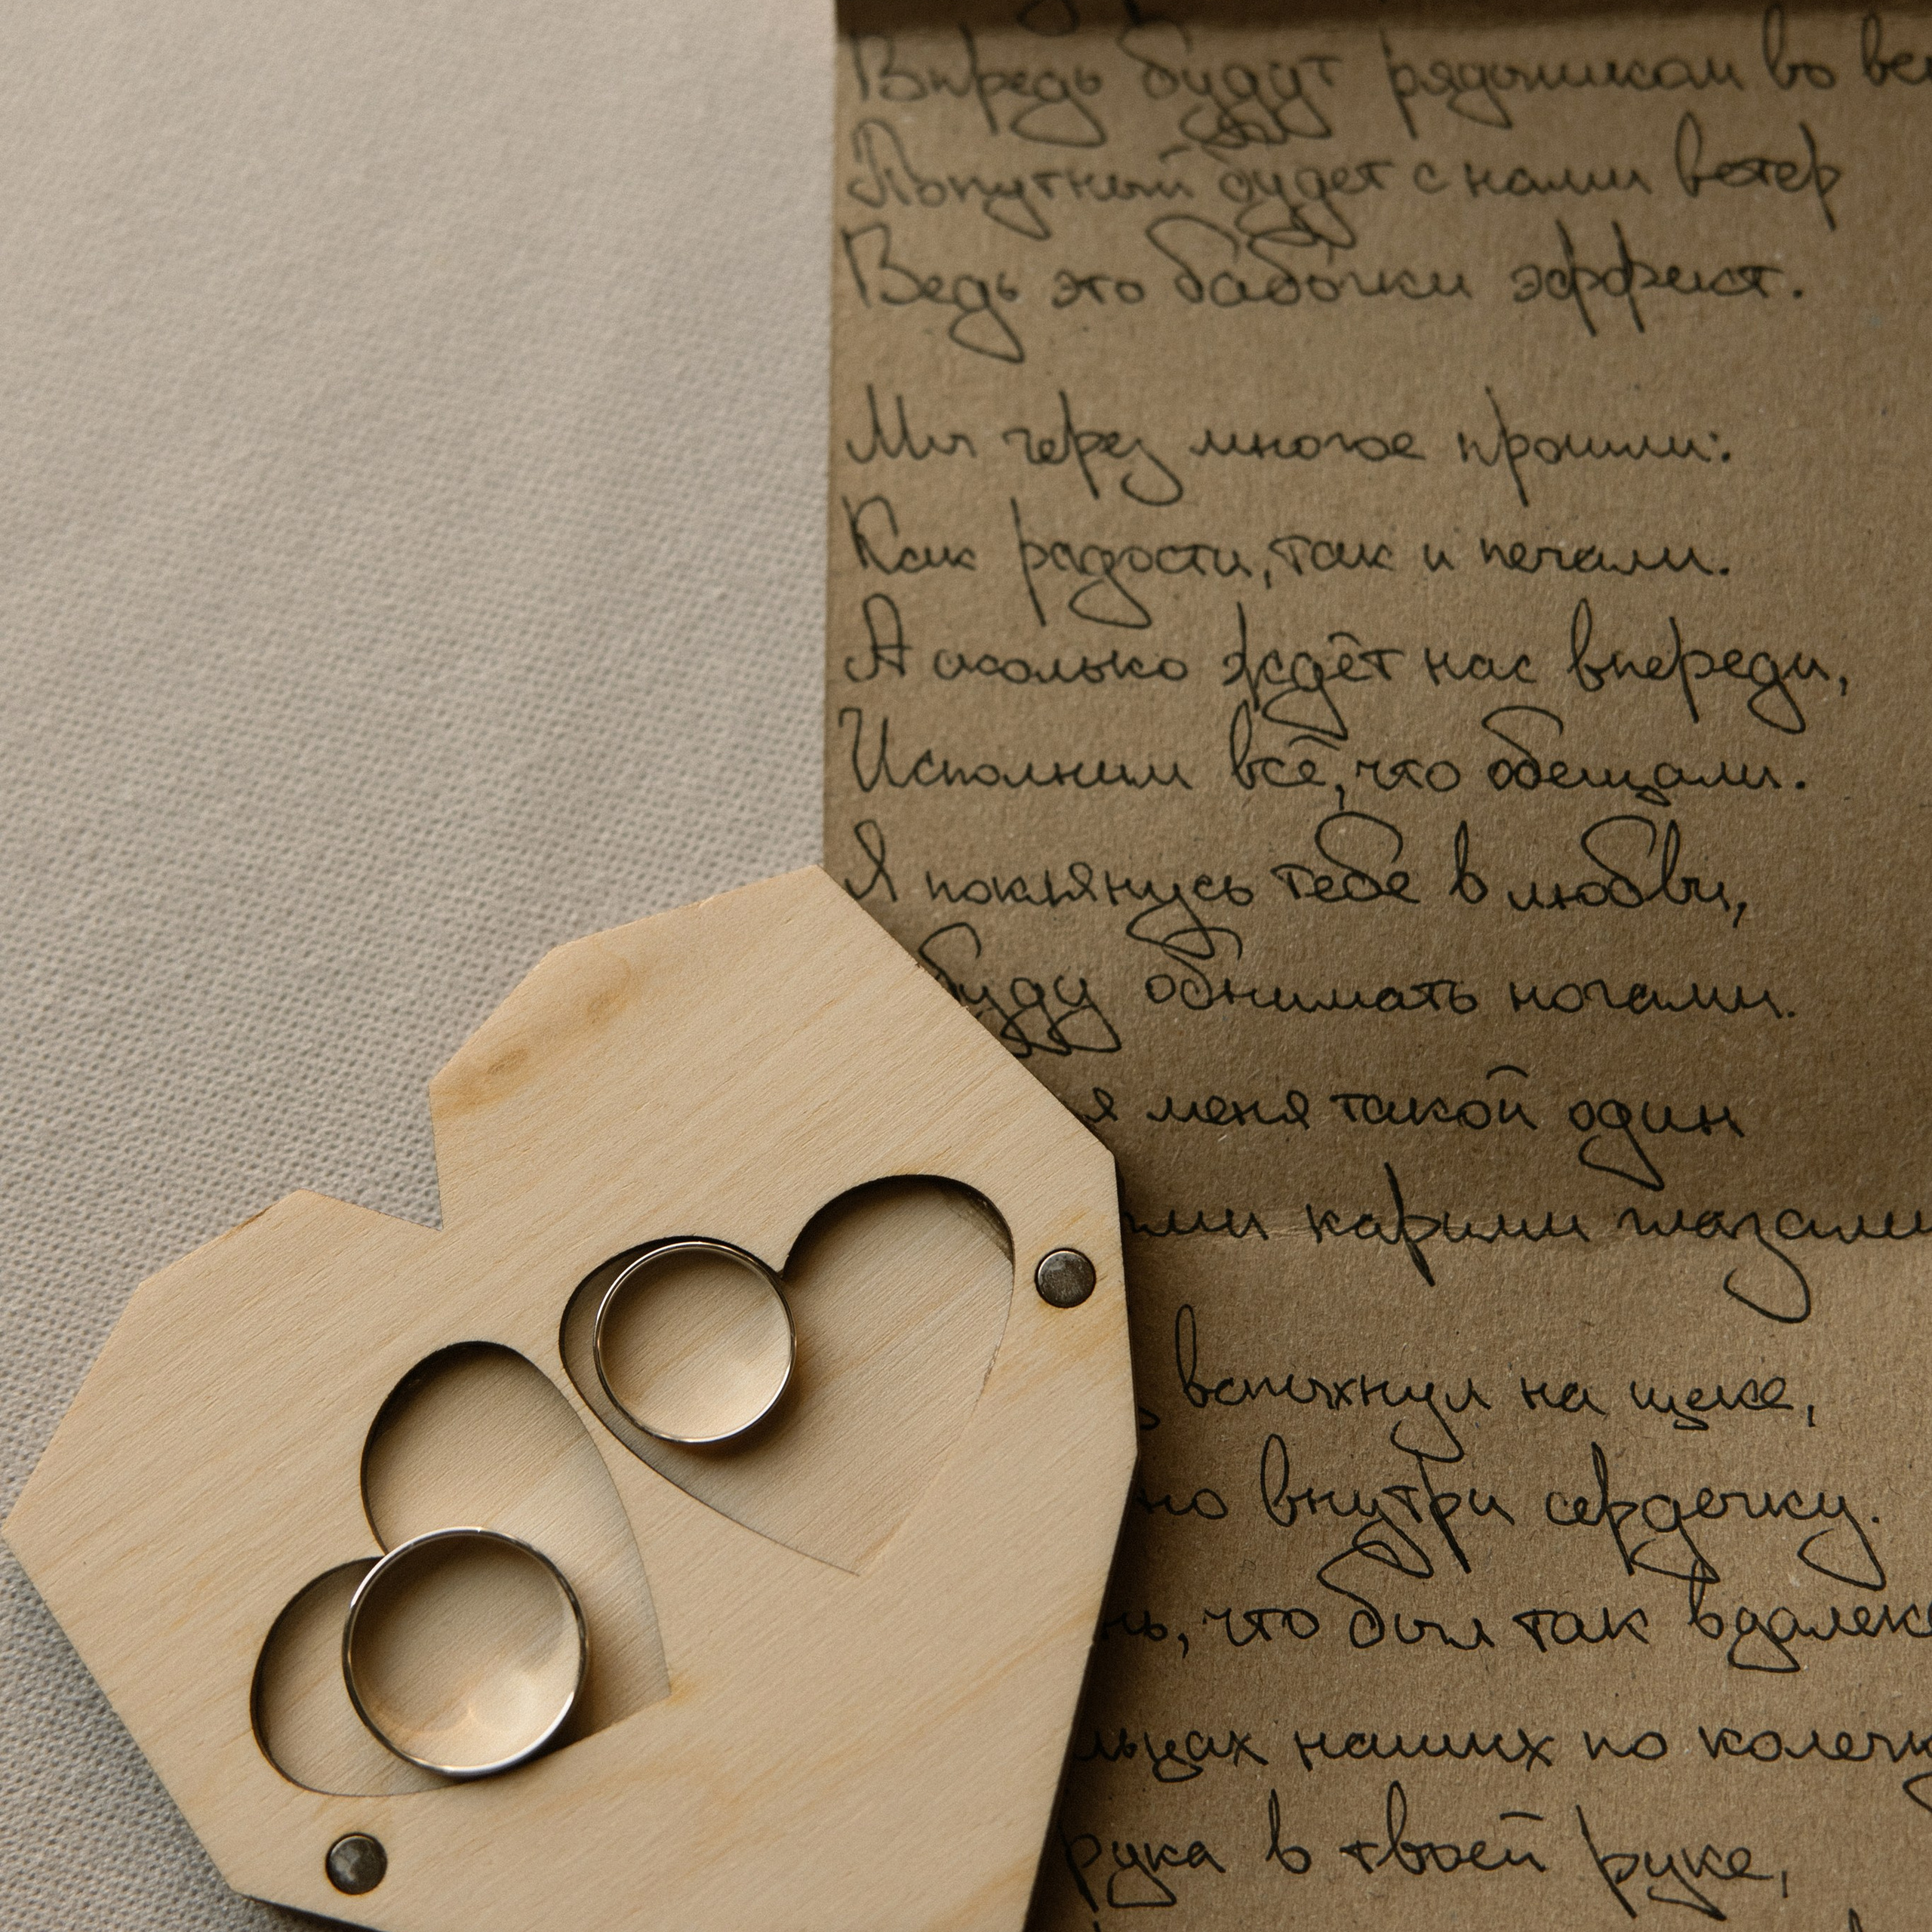 Впредь будут рядышком во
Попутный будет с нами ветер
Ведь это бабочки эффект.
Мы через многое прошли:
Как радости, так и печали.
А сколько ждёт нас впереди,
Исполним всё, что обещали.
Я поклянусь тебе в любви,
буду обнимать ночами.
меня такой один
карими глазами
вспыхнул на щеке,
внутри сердечку.
что был так вдалеке
наших по колечку
рука в твоей руке,